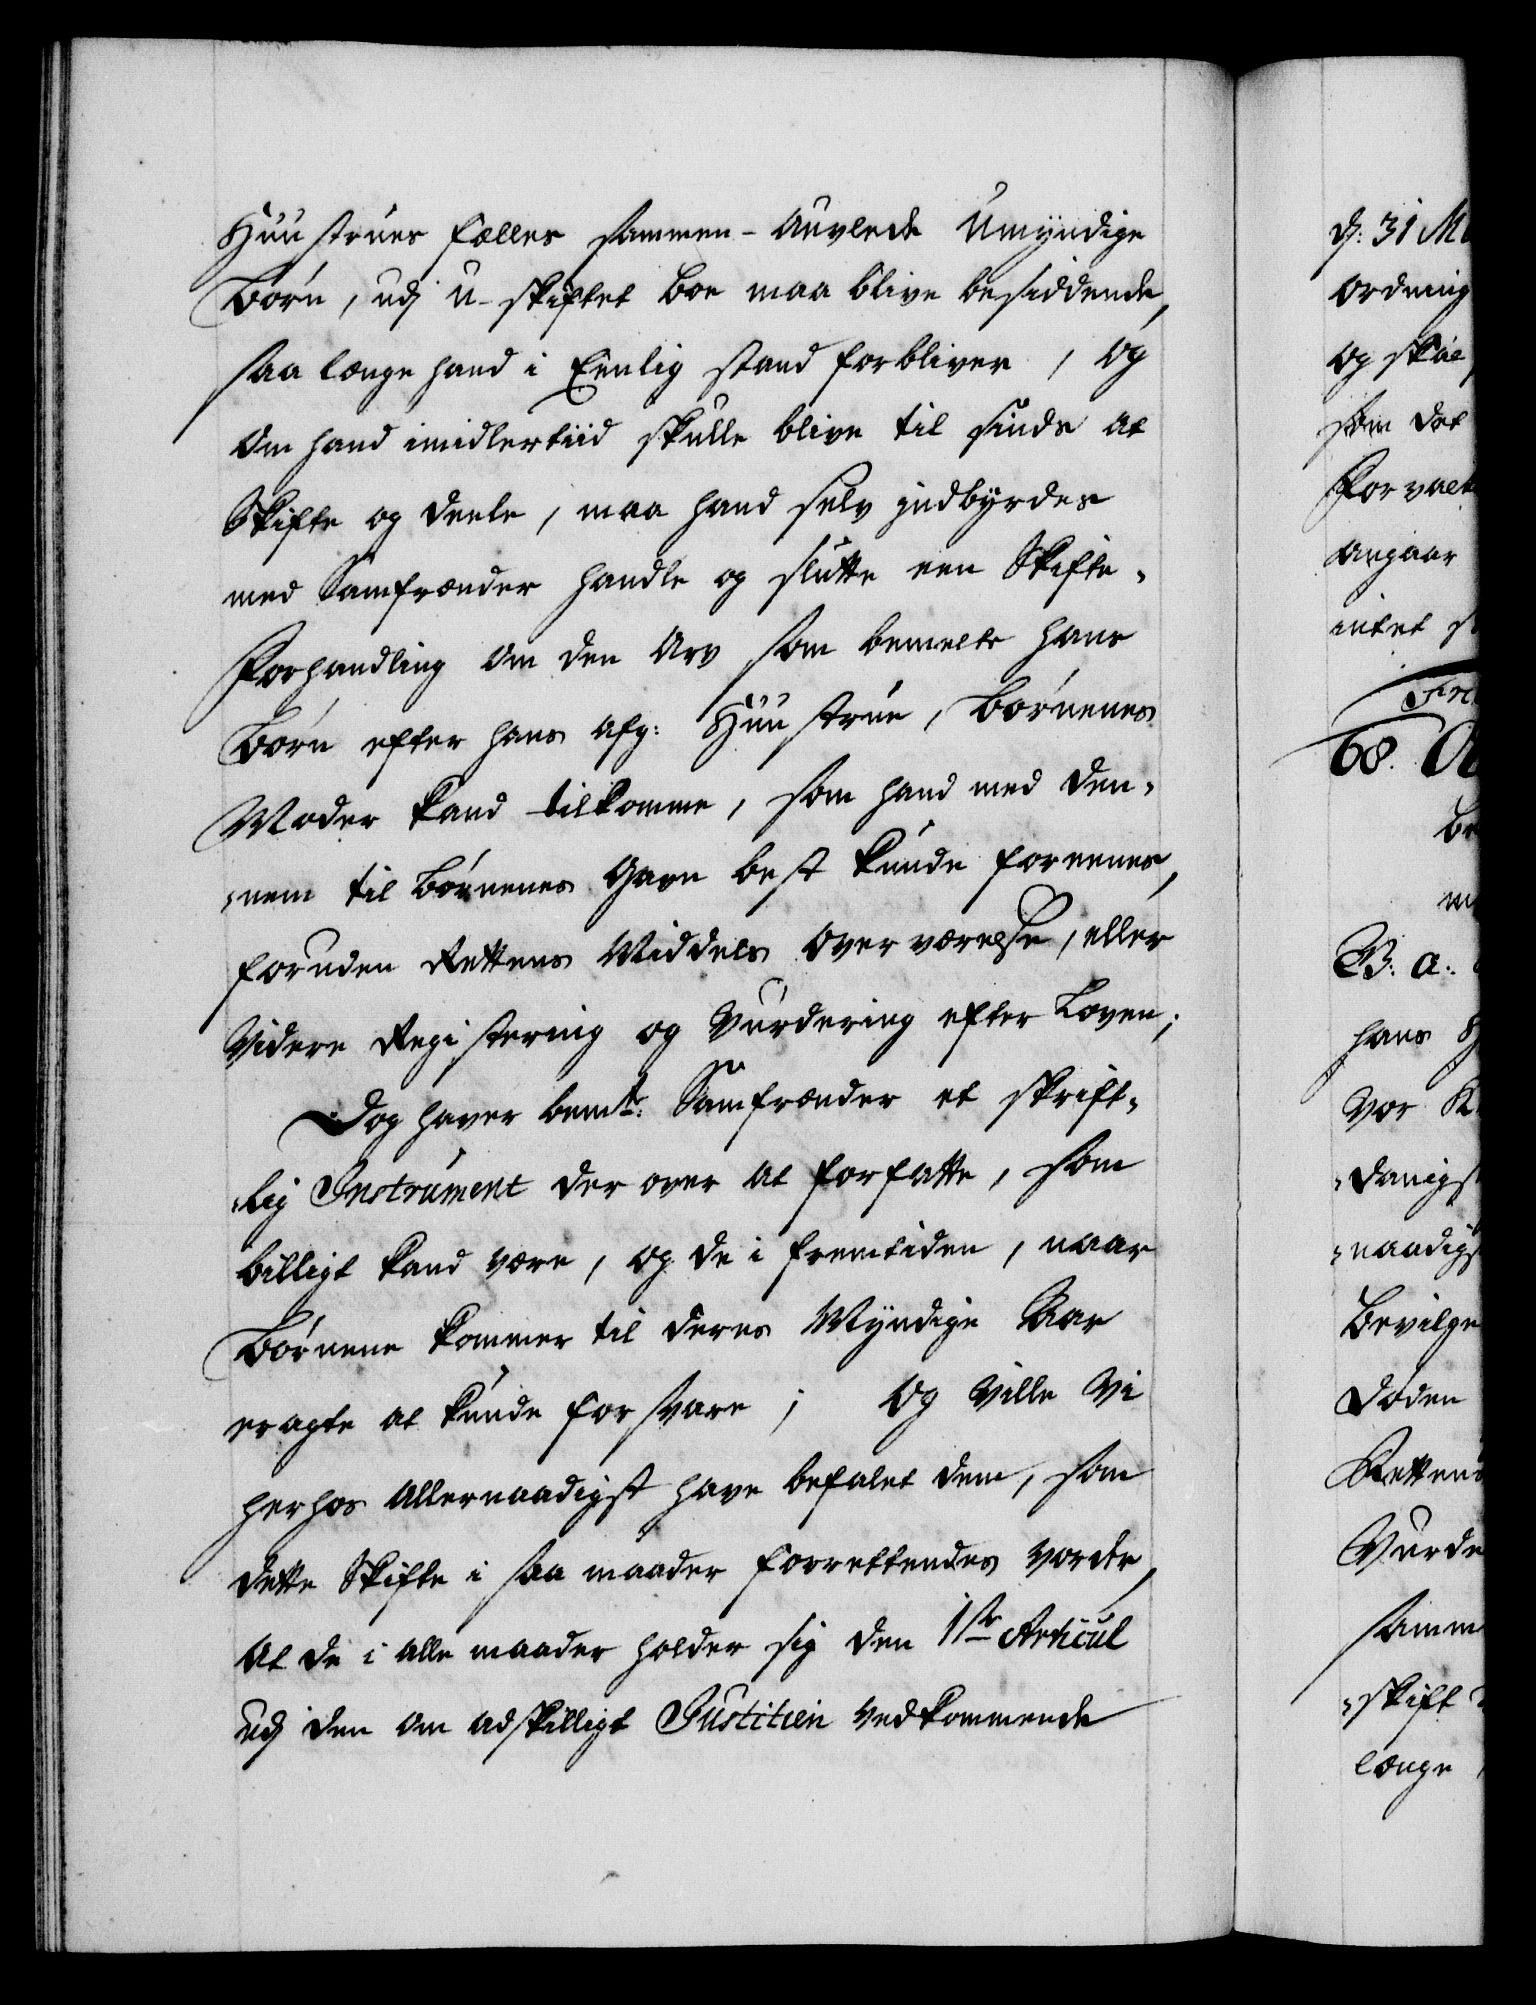 Huustrues fælles sammen-auvlede Umyndige
Børn, udj u-skiftet Boe maa blive besiddende,
saa længe hand i Eenlig stand forbliver, og
om hand imidlertiid skulle blive til sinds at
Skifte og deele, maa hand selv indbyrdes
med Samfrænder handle og slutte een Skifte-
Forhandling om den Arv som bemelte hans
Børn efter hans afg: Huustrue, Børnenes
Moder kand tilkomme, som hand med den-
nem til Børnenes Gavn best kunde foreenes,
foruden Rettens Middels Overværelse, eller
Videre Registering og Vurdering efter Loven;
Dog haver bemte: Samfrænder et skrift-
lig Instrument der over at forfatte, som
billigt kand være, og de i fremtiden, naar
Børnene kommer til deres Myndige Aar
eragte at kunde forsvare; Og Ville Vi
herhos allernaadigst have befalet dem, som
dette Skifte i saa maader forrettendes vorde,
at de i alle maader holder sig den 1ste Articul
udj den om adskilligt Justitien vedkommende
d: 31 M
Ordning
og skal
som det
Forvalt
angaar
intet s
Fri
68. A
Br
m
B: a:
hans H
Vor K
danigst
naadigs
Bevilge
Døden
Rettens
Vurde
samm
skift
længe